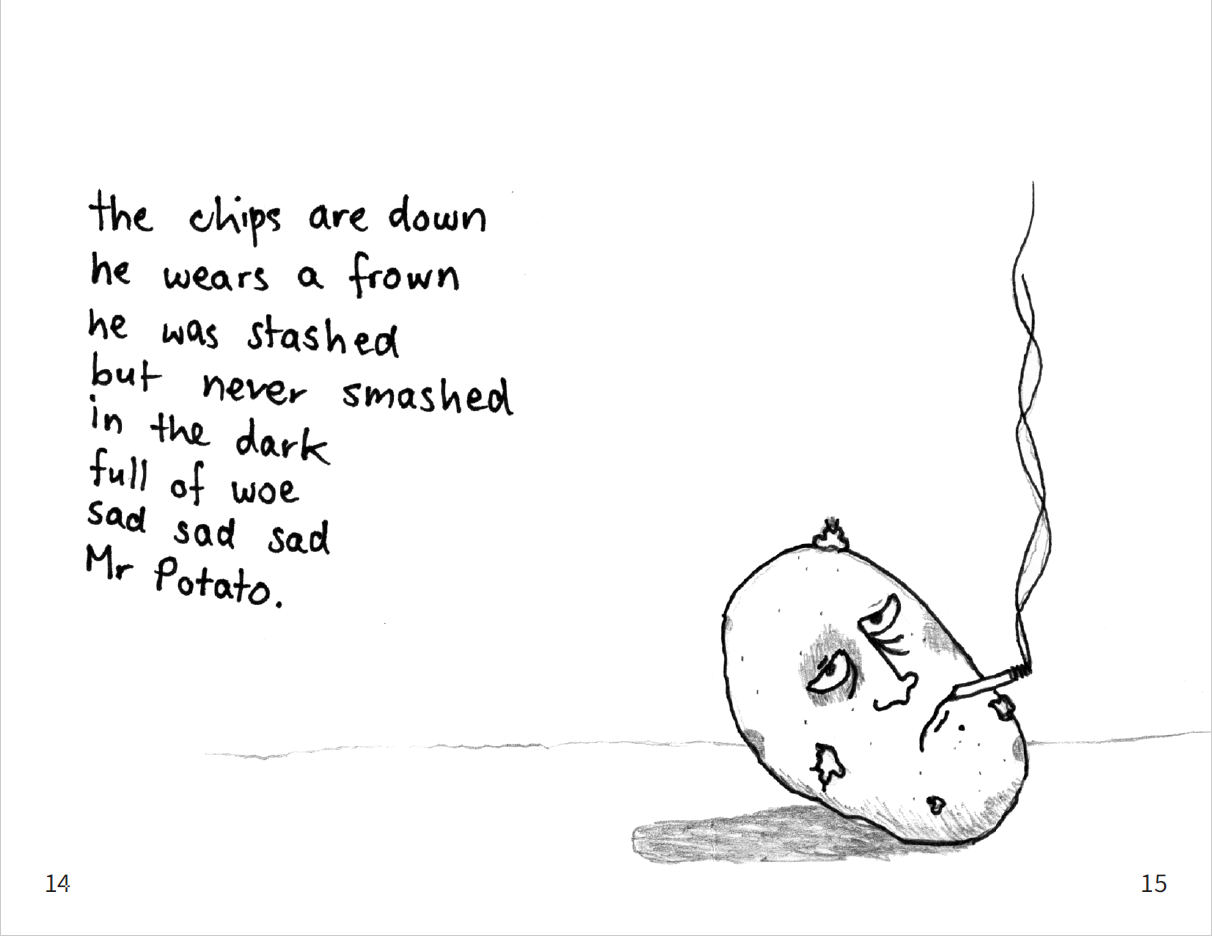 the chips are down
he wears a frown
he was stashed
but never smashed
in the dark
full of woe
sad sad sad
Mr Potato.
14
15